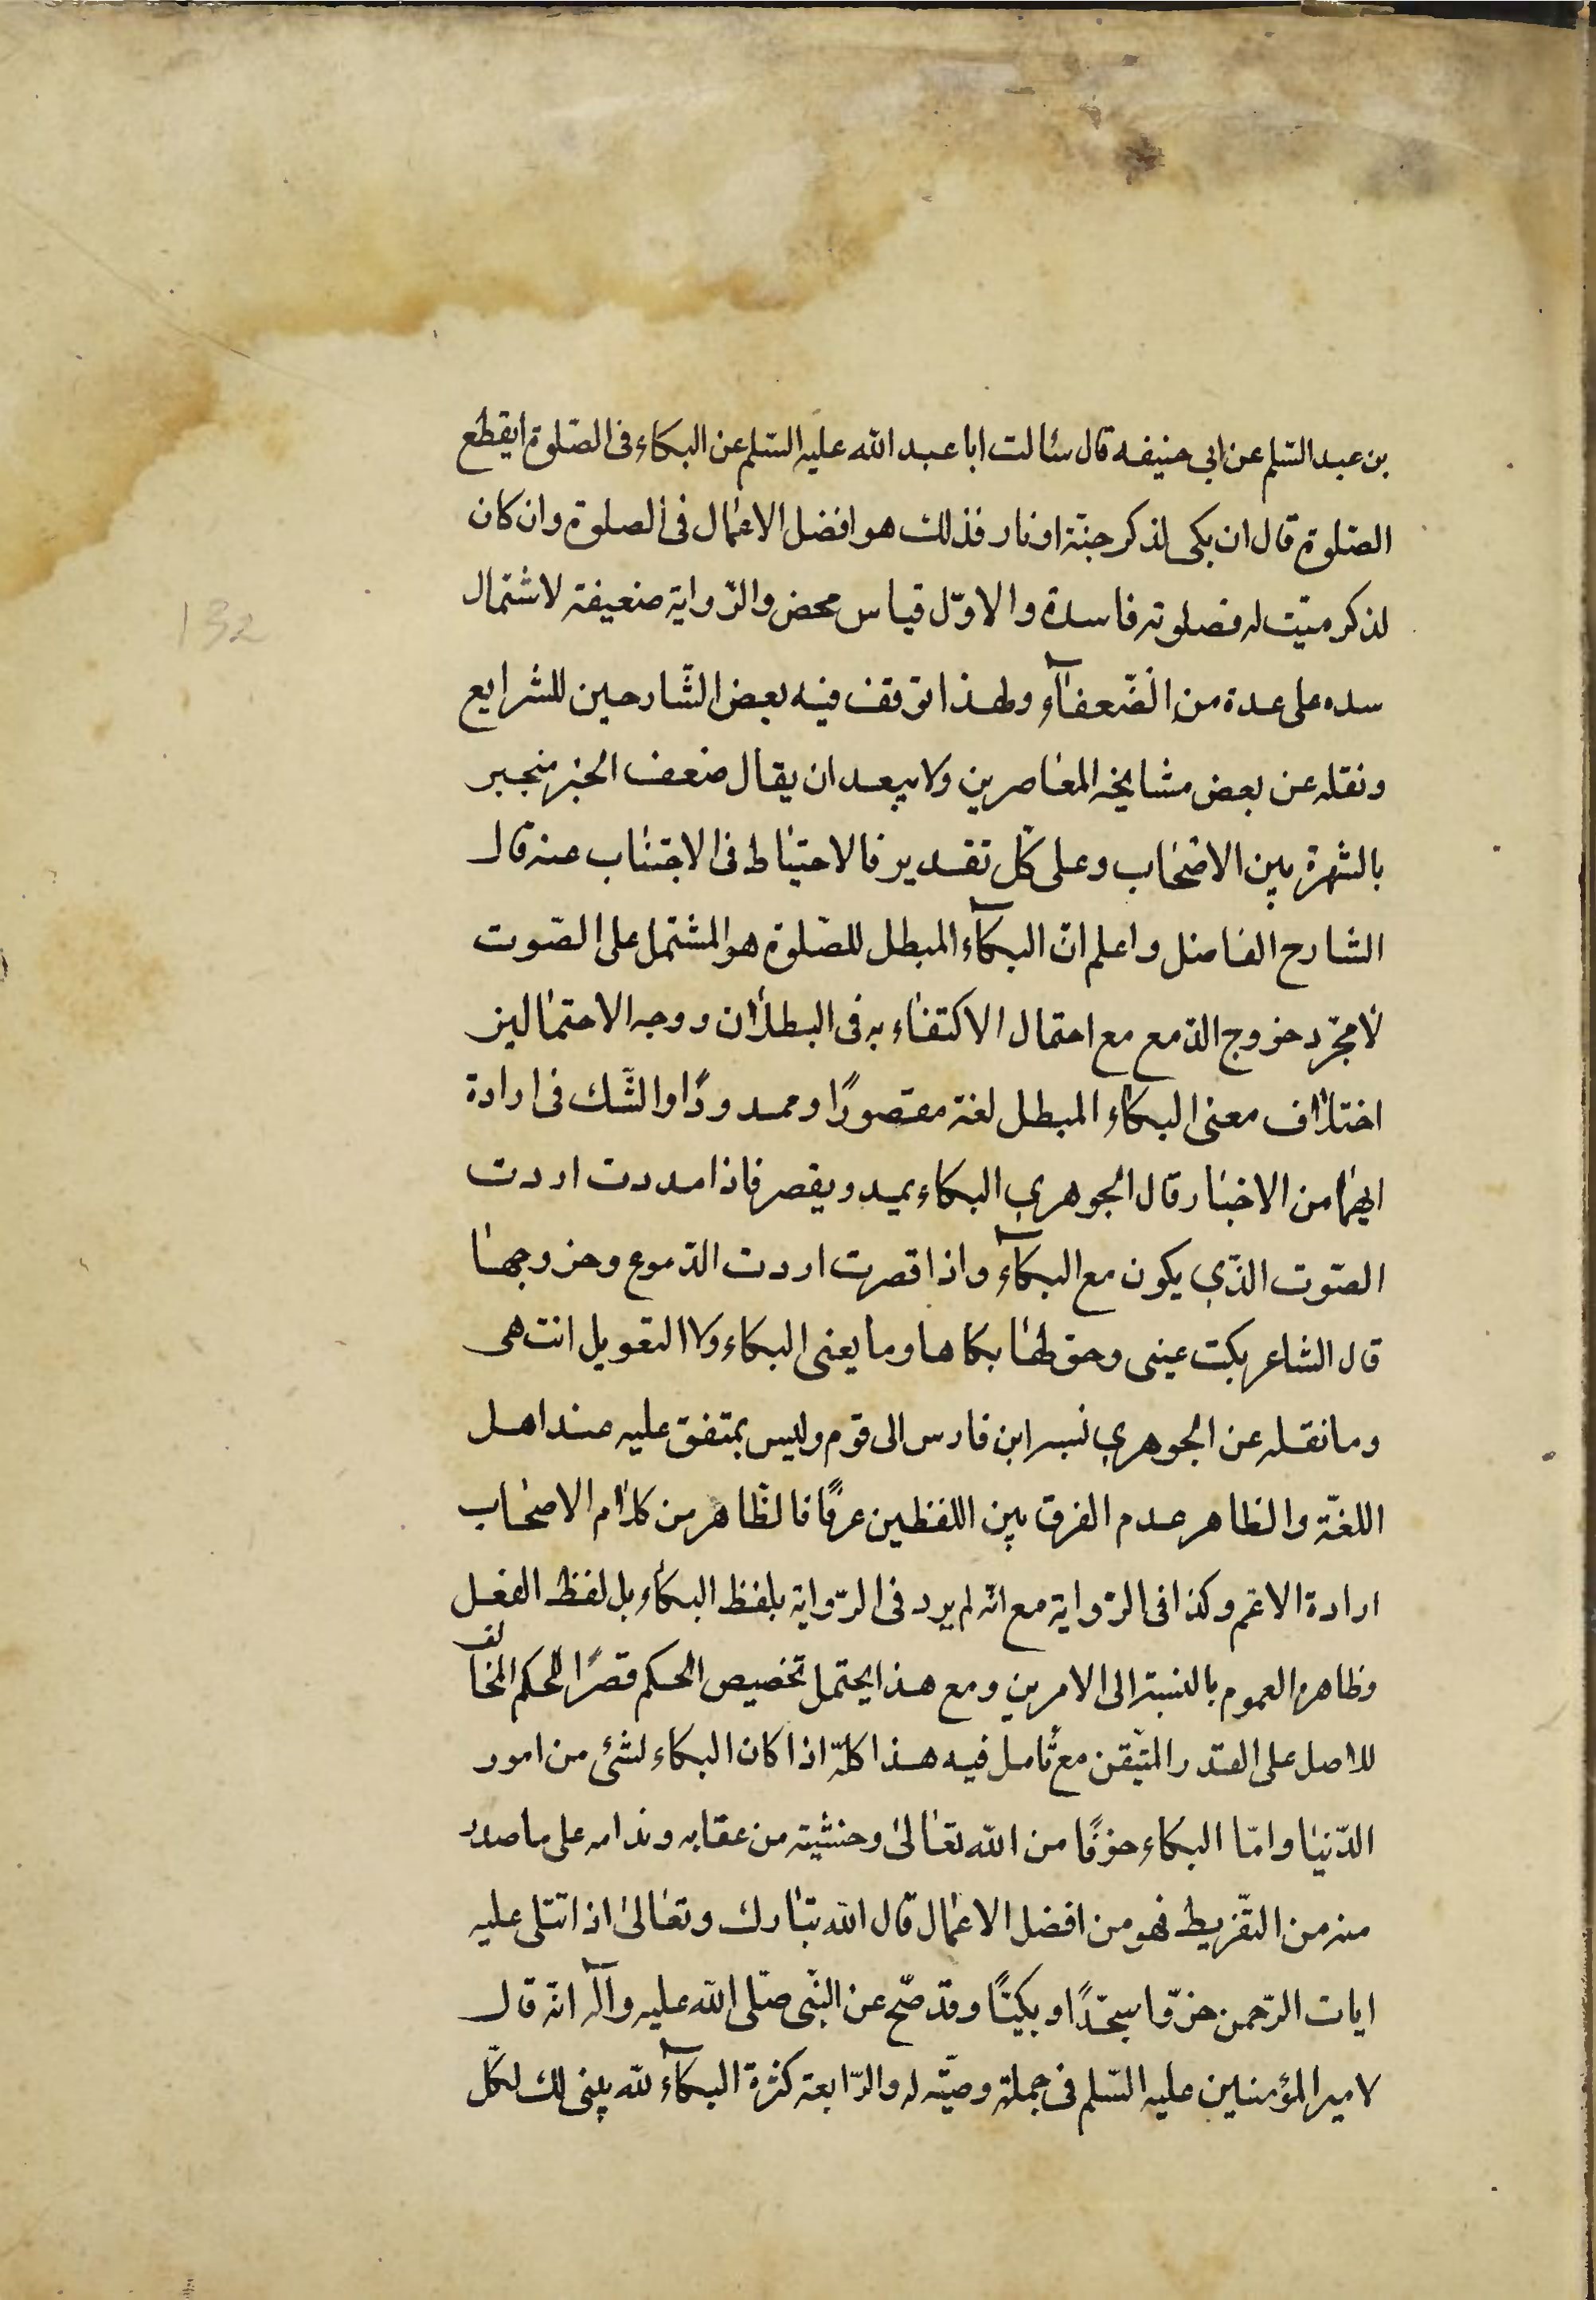 بن عبد السّلم عن ابى حنيفه قال سئالت ابا عبد الله عليه السّلم عن البكاء فى الصّلوة ايقطع
الصّلوة قال ان بكى لذكر جنّة او نار فذلك هو افضل الاعمال فى الصلوة وان كان
لذكر ميّت له فصلوته فاسدة والاوّل قياس محض والرّواية ضعيفة لاشتمال
سده على عدة من الضّعفآء ولهذا توقف فيه بعض الشّارحين للشرايع
ونقله عن بعض مشايخه المعاصرين ولا يبعد ان يقال ضعف الخبر منجبر
بالشهرة بين الاصحاب وعلى كلّ تقدير فالاحتياط فى الاجتناب عنه قال
الشارح الفاضل واعلم انّ البكآء المبطل للصّلوة هو المشتمل على الصّوت
لا مجرّد خروج الدّمع مع احتمال الاكتفاء به فى البطلان ووجه الاحتمالين
اختلاف معنى البكاء المبطل لغة مقصورًا وممدودًا والشّك فى ارادة
ايهما من الاخبار قال الجوهرى البكاء يمد ويقصر فاذا مددت اردت
الصّوت الذّى يكون مع البكآء واذا قصرت اردت الدّموع وخروجها
قال الشاعر بكت عينى وحق لها بكاها وما يغنى البكاء ولا العويل انتهى
وما نقله عن الجوهرى نسبه ابن فارس الى قوم وليس بمتفق عليه عند اهل
اللغّة والظاهر عدم الفرق بين اللفظين عرفًا فالظّاهر من كلام الاصحاب
ارادة الاعّم وكذا فى الرّواية مع انّه لم يرد فى الرّواية بلفظ البكاء بل لفظ الفعل
وظاهره العموم بالنسبة الى الامرين ومع هذا يحتمل تخصيص الحكم قصرًا للحكم المخالف
للاصل على القدر المتيّقن مع تأمل فيه هذا كلّه اذا كان البكاء لشئ من امور
الدّنيا وامّا البكاء خوفًا من الله تعالىٰ وخشية من عقابه وندامه على ما صدر
منه من التفّريط فهو من افضل الاعمال قال الله تبارك وتعالىٰ اذا تتلى عليه
ايات الرّحمن خرّوا سجّدًا وبكيّا وقد صّح عن النبّى صلّى الله عليه وآله انّه قال
لامير المؤمنين عليه السّلم فى جملة وصيّته له والرّابعة كثرة البكآء لله يبنى لك لكلّ
132